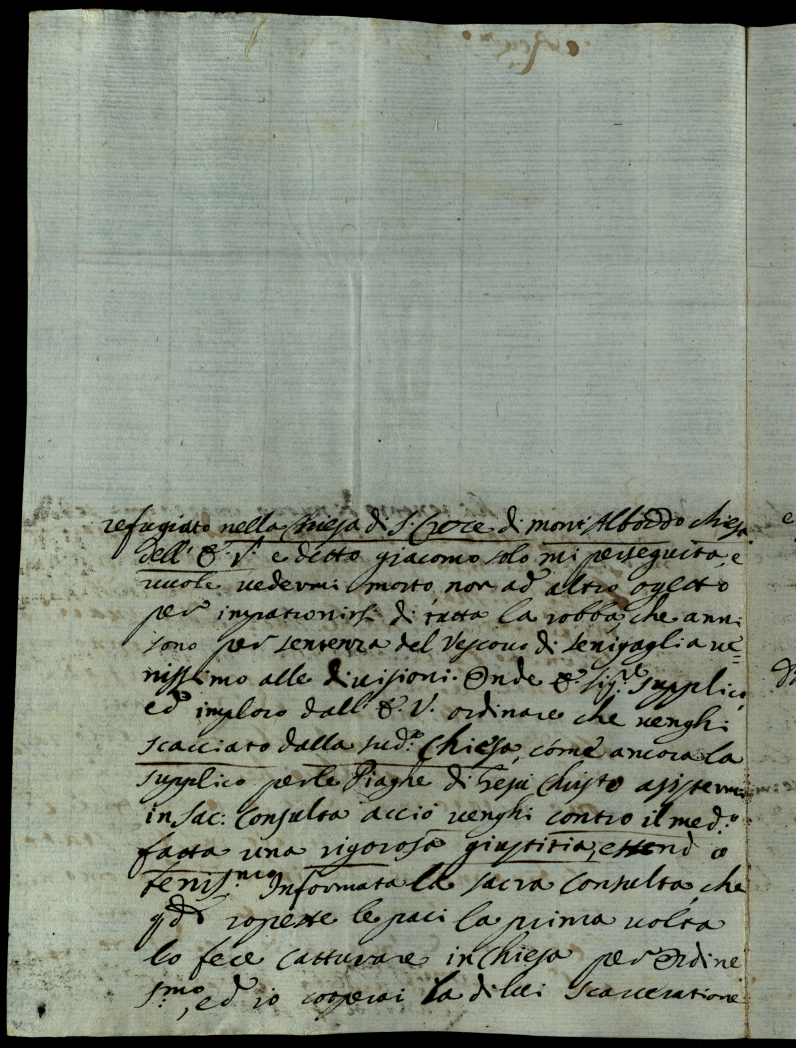 refugiato nella Chiesa di S. Croce di mont'Alboddo chiesa
dell' E. V. e detto giacomo solo mi perseguita, e
vuole vedermi morto non ad altro ogetto
per impationirsi di tutta la robba, che anni
sono per sentenza del Vescovo di Senigaglia ve=
nissimo alle divisioni. Onde E. Sig.re supplico,
ed imploro dall' E. V. ordinare che venghi
scacciato dalla sud.a Chiesa, come ancora la
supplico per le Piaghe di Giesù Christo assistermi
in Sac: Consulta acciò venghi contro il med.o
fatta una rigorosa giustitia, essend o
Informata la sacra Consulta, che
q.do ropesse le paci la prima volta
lo fece catturare in Chiesa per Ordine
S.mo, ed io cooperai la di lui scarceratione